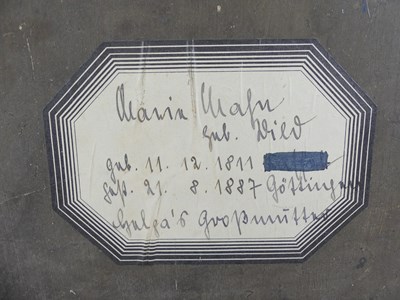 Marie Mahn
geb. Dild
geb. 11. 12. 1811
gest. 21. 8. 1887 Göttingen
Helga's Großmutter